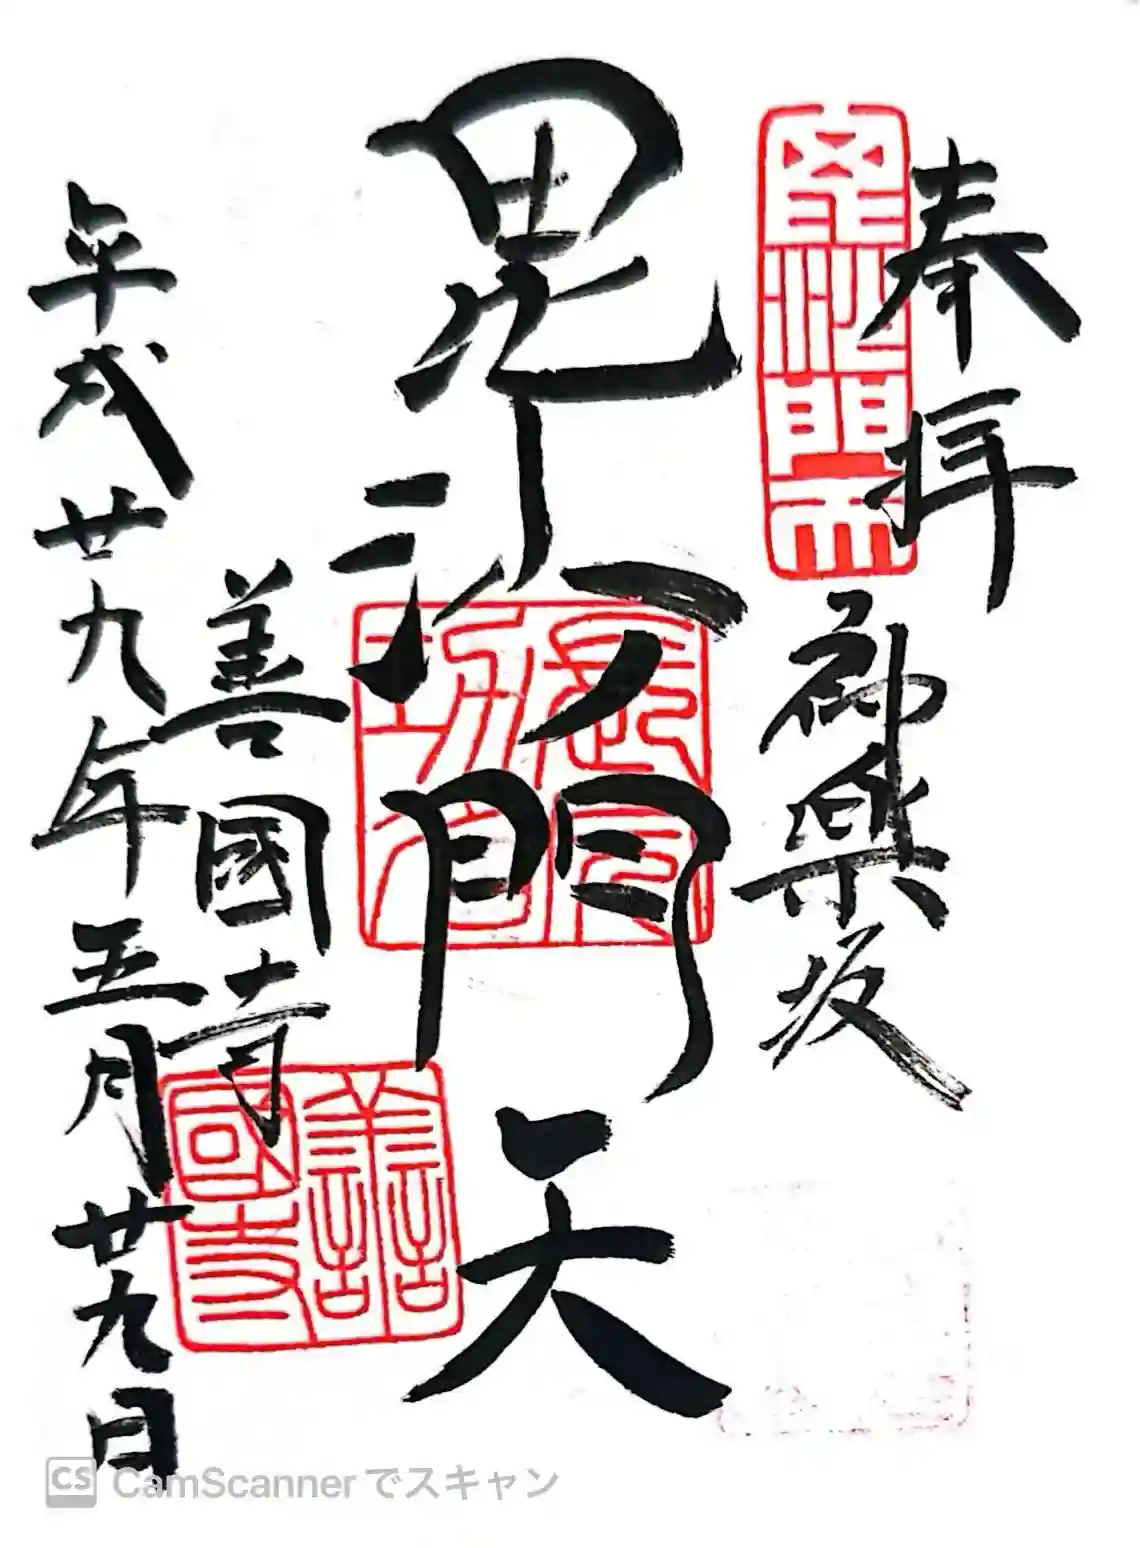 奉拝
神樂坂
毘沙門天
善國寺
平成廿九年五月廿九日
善國寺
CamScannerでスキャン